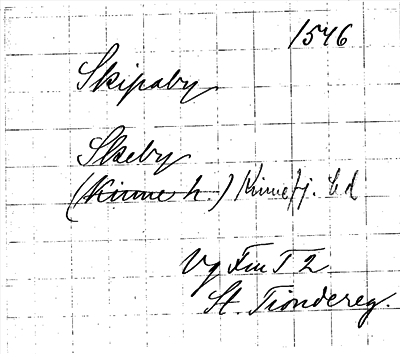 1546
Skipaby
Skeby
(Kinne h.) Kinnefj. hd
Vg Fru T 2
St. Tiondereg.